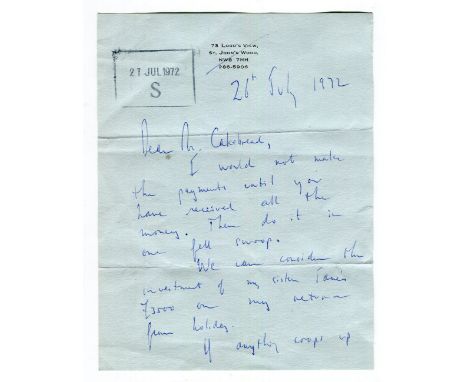 73 Lord's View,
St. John's Wood,
NW8 7HH
286-5996
27 JUL 1972
S
26th July 1972
Dear Mr. Cakebread,
I would not make
the payments until you
have received all the
money. Then do it in
one fell swoop.
We can consider the
investment of my sister Jane's
£3000 on my return
from holiday.
If anything crops up